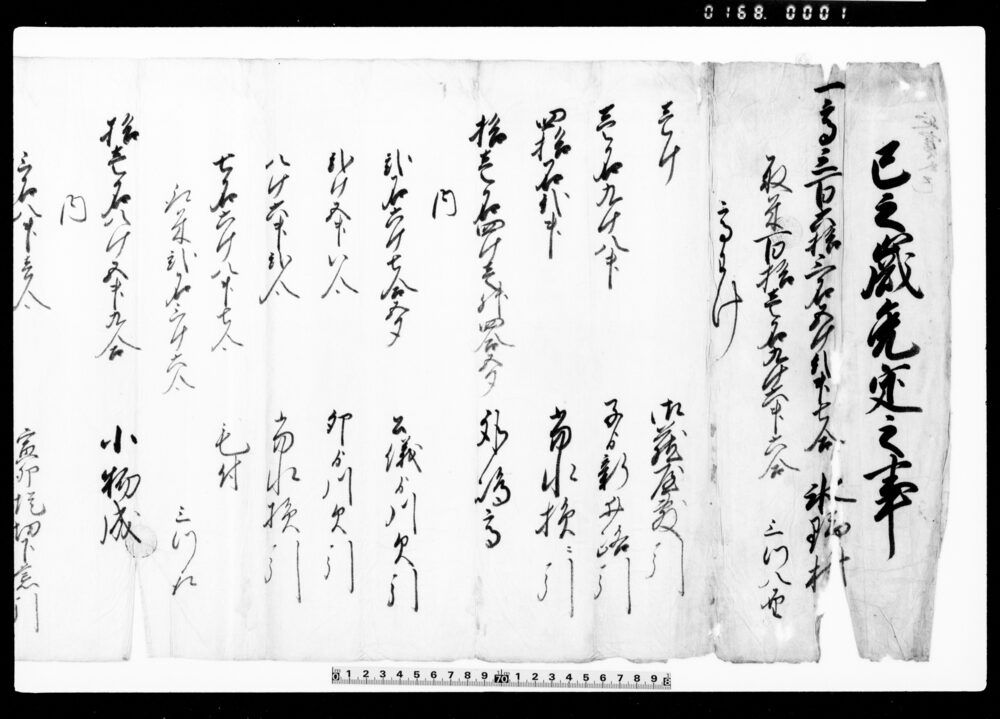 0168. 0001
巳之歳免定之事
一高三百六拾三石五斗弐升七合
取米百拾壱石九斗六升六合 三ツ八厘
高わけ
壱斗 御蔵屋敷引
壱石九斗八升 子ゟ新井路引
四拾石弐升 当水損ニ引
拾壱石四斗壱升四合五夕 外嶋高
内
弐石六斗七合五夕 公儀ゟ川欠引
弐斗五升 卯ゟ川欠引
八斗六升弐合 当水損引
七石六斗八升七合 毛付
取米弐石三斗六合 三ツ取
拾壱石八斗五升九合 小物成
内
三石八升壱合 寅卯堤切下窓引
0 1 2 3 4 5 6 7 8 9 70 1 2 3 4 5 6 7 8 9 8